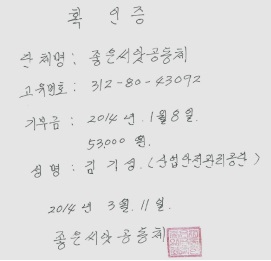 확 인 증
단체명 : 좋은씨앗공동체
고유번호 : 312-80-43092
기부금 : 2014년 1월 8일.
53,000 원.
성 명 : 김기성. (산업안전관리공단)
2014년 3월 11일.
좋은씨앗공동체